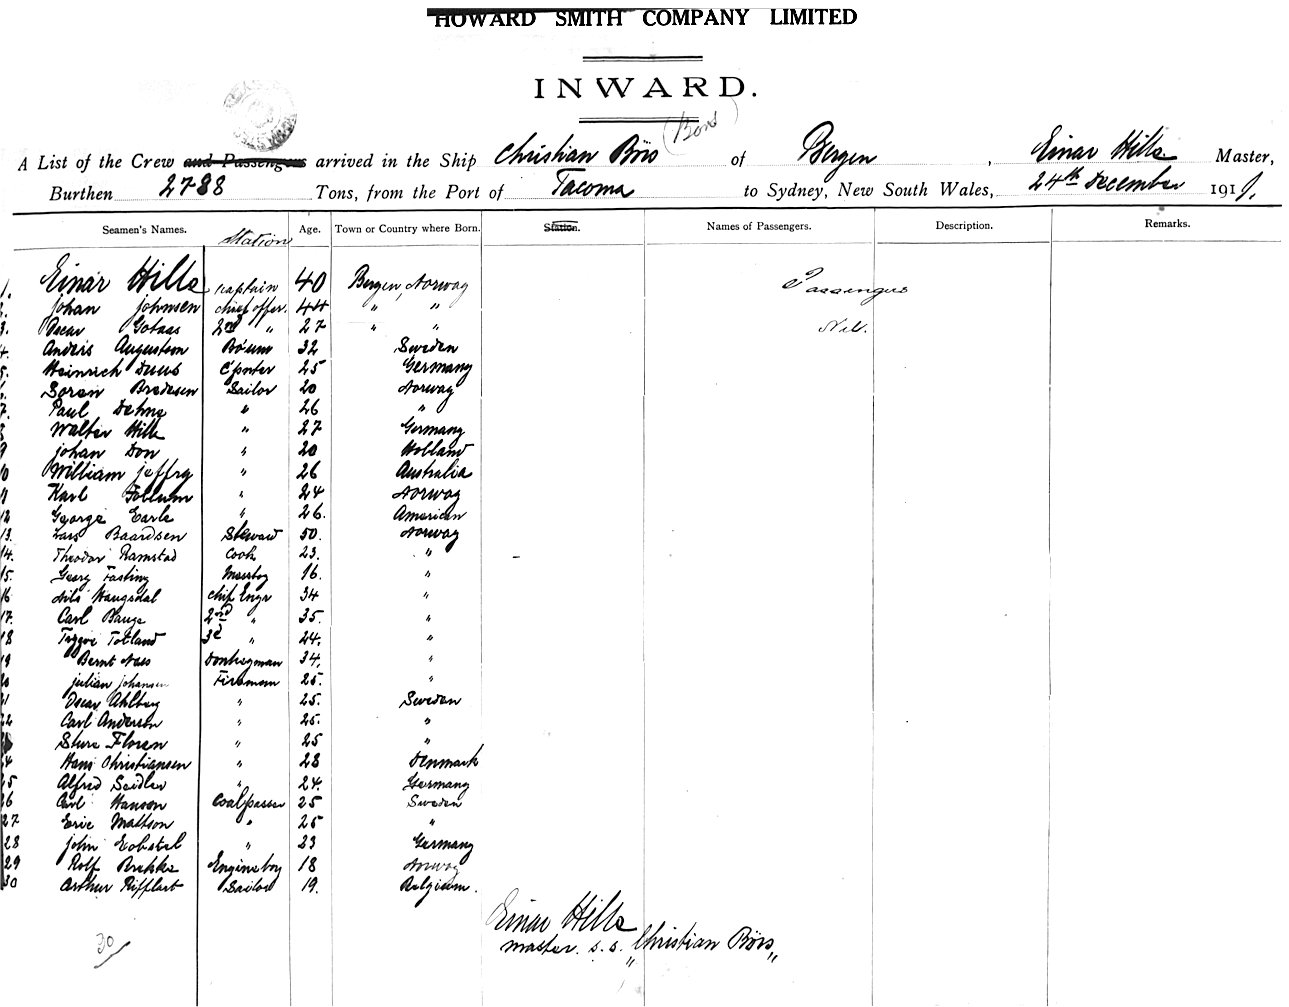 HOWARD SMITH COMPANY LIMITED
INWARD.
(Bors)
A List of the Crew and Passengers arrived in the Ship Christian Börs of Bergen, Einar Hille Master,
Burthen 2788 Tons, from the Port of Tacoma to Sydney, New South Wales, 24th December 191
Seamen's Names. Station Age. Town or Country where Born. Station. Names of Passengers. Description. Remarks.
1. Einar Hille captain 40 Bergen, Norway Passengers
2. Johan Johnsen chief offer. 44 " "
3. Oscar Gotaas 2nd " 27 " " Nil.
4. Anders Augustson Bo'sun 32 Sweden
5. Heinrich Duus C'pnter 25 Germany
6. Soren Bredesen Sailor 20 Norway
7. Paul Dehme " 26 "
8 Walter Hille " 27 Germany
9 Johan Don " 20 Holland
10 William Jeffry " 26 Australia
11 Karl Follum " 24 Norway
12 George Earle " 26. American
13. Lars Baardsen Steward 50. Norway
14. Theodor Ramstad Cook 23. "
15. Georg Fasting Messboy 16. "
16 Nils Haugsdal chif Engr 34 "
17. Carl Bauge 2nd " 35. "
18 Trygve Totland 3d " 24. "
19 Bernt Ness Donkeyman 34. "
20 Julian Johansen Fireman 25. "
21 Oscar Ahlberg " 25. Sweden
22 Carl Anderson " 25. "
Sture Floren " 25 "
24 Hans Christiansen " 28 Denmark
25 Alfred Seidler " 24. Germany
26 Carl Hanson Coalpasser 25 Sweden
27 Eric Mattson " 25 "
28 John " 23 Germany
29 Rolf Brekke Engineboy 18 Norway
30 Arthur Rifflart Sailor 19. Belgium.
Einar Hille
30/ master. s.s. "Christian Börs"